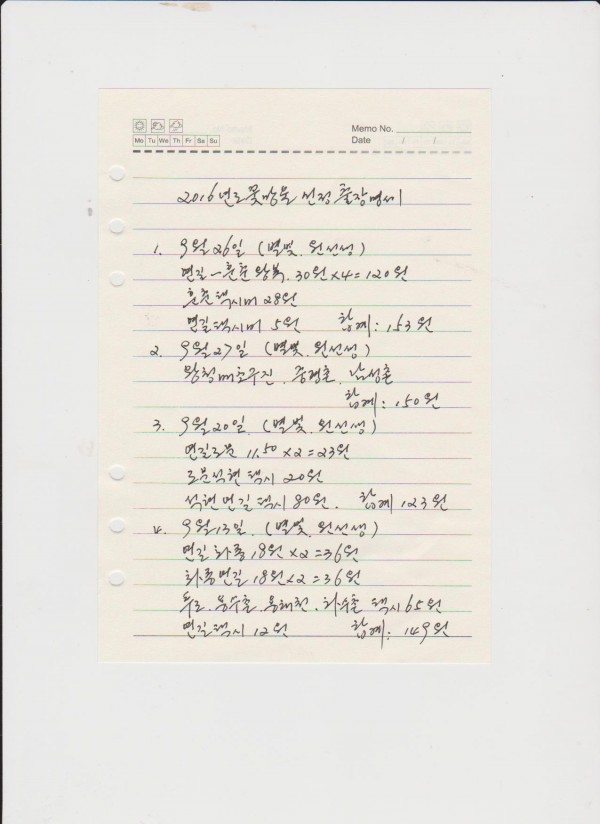 Memo No.
Mo Tu We Th Fr Sa Su
Date / /
2016년도 꽃망울 선정 출장명세
1. 9월 26일 (별빛. 원선생)
연길-훈춘 왕복. 30원 x4=120원
훈춘택시비 28원
연길택시비 5원 합계: 153원
2. 9월 27일 (별빛. 원선생)
왕청 배초구진. 중평촌. 남성촌
합계: 150원
3. 9월 20일. (별빛. 원선생)
연길도문 11.50 x2=23원
도문석현 택시 20원
석현 연길 택시 80원. 합계 123원
4. 9월 13일. (별빛. 원선생)
연길 화룡 18원 x2=36원
화룡연길 18원 x2=36원
택시 65원
연길택시 12원 합계: 149원